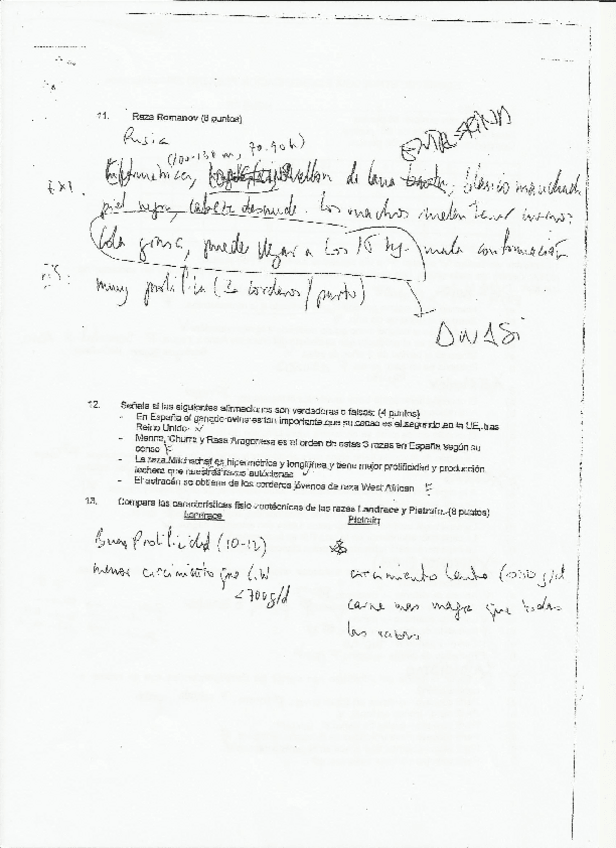 11. Raza Romanov (8 puntos)
Rusia
(100-130 m, 70-90 h)
ENTREFINA
vellon de lana
piel negra, cabeza desnuda. Los machos suelen tener
Cola grasa, puede llegar a los 15 kg. mala conformación
muy prolífica (3 corderos / parto)
DUDASI
12. Señale si las siguientes afirmaciones son verdaderas o falsas: (4 puntos)
- En España el ganado ovino es tan importante que su censo es el segundo en la UE, tras
Reino Unido. V
- Merina, Churra y Rasa Aragonesa es el orden de estas 3 razas en España según su
censo F
- La raza Milchschaf es hipermétrica y longilínea y tiene mejor prolificidad y producción
lechera que nuestras razas autóctonas V
- El astracán se obtiene de los corderos jóvenes de raza West African F
13. Compara las características fisio-zootécnicas de las razas Landrace y Pietrain. (8 puntos)
Landrace Pietrain
Buena Prolificidad (10-12)
menor crecimiento que LW crecimiento lento
<700g/d carne mas magra que todas
las razas